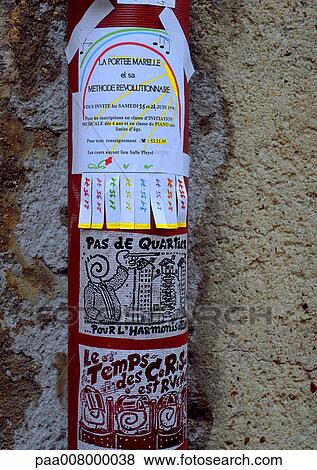 LA PORTEE MARELLE
et sa
METHODE REVOLUTIONNAIRE
VOUS INVITE les SAMEDI et 22 JUIN
Pour les inscriptions en classe d'INITIATION
MUSICALE dès 4 ans et en classe de PIANO sans
limite d'âge.
Pour tout renseignement : ☎ : 53.21.95
Les cours auront lieu Salle Pleyel
PAS DE QUARTIER
...POUR L'HARMONISATION
Le
TEMPS
des CeRiSes
est
Fotosearch
paa008000038 www.fotosearch.com